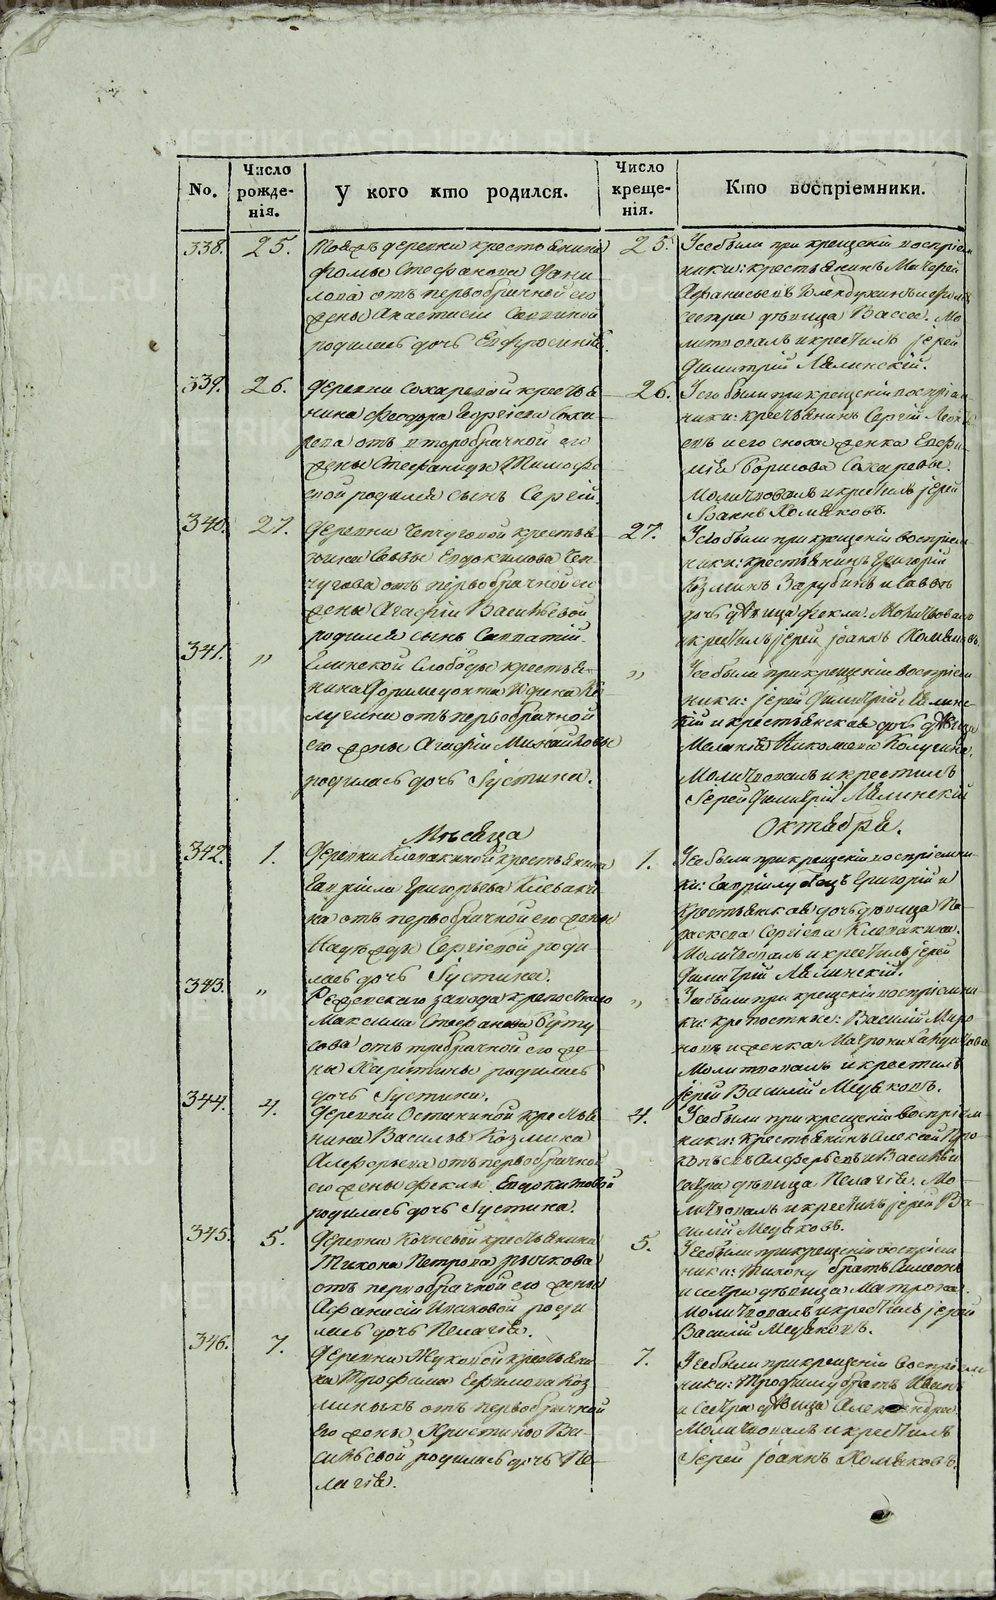 No.
Число рожде-
нія.
У кого кто родился.
Число креще-
нія.
Кто воспріемники.
338. 25.
Тоеже деревни крестьянина
Фомы Стефанова Дани
лова отъ первобрачной его
жены Анастасіи Саввиной
родилась дочь Евфросинія.
25. У сего были при крещеніи воспріем
ники: крестьянинъ
сестра дѣвица Васса. Мо
литвовалъ и крестилъ іерей
Димитрій Лялинскій.
339. 26.
Деревни Сохаревой крестья
нина Феодора Георгіева Соха
рева отъ второбрачной его
жены Стефаниды Тимофе
евой родился сынъ Сергій.
26. У сего были при крещеніи воспріем
ники: крестьянинъ Сергій Леонть
евъ и его сноха женка Евфи
мія Борисова Сохаревы.
Молитвовалъ и крестилъ іерей
Іоаннъ Хомяковъ.
340. 27.
Деревни Чепчуговой крестья
нина Саввы Евдокимова Чеп
чугова отъ первобрачной его
жены Агафіи Васильевой
родился сынъ Савватій.
27. У сего были при крещеніи воспріем
ники: крестьянинъ Григорій
Козминъ Зарубинъ и Саввы
дочь дѣвица Фекла. Молитвовалъ
и крестилъ іерей Іоаннъ Хомяковъ.
341. „
слободы крестья
нина
отъ первобрачной
его жены Агафіи Михайловы
родилась дочь Іустина.
„ У сея были при крещеніи воспріем
ники: іерей Димитрій Лялинс
кій и крестьянская дочь дѣвица
Меланія Никомева Калугина.
Молитвовалъ и крестилъ
Іерей Димитрій Лялинскій
Мѣсяца Октября.
342. 1.
Деревни Клевакиной крестьянина
Гавріила Григорьева Клеваки
на отъ первобрачной его жены
Надежды Сергіевой роди
лась дочь Іустина.
1. У сея были при крещеніи воспріемни
ки: Гавріилу отецъ Григорій и
крестьянская дочь дѣвица Па
раскева Сергіева Клевакина.
Молитвовалъ и крестилъ іерей
Димитрій Лялинскій.
343. „
Режевскаго завода крепостнаго
Максима Стефанова Бурту
сова отъ требрачной его же
ны Харитины родилась
дочь Іустина.
„ У сея были при крещеніи воспріемни
ки: крепостные: Василій Миро
новъ и женка Матрона
Молитвовалъ и крестилъ
іерей Василій Мецековъ.
344. 4.
Деревни Останиной крестья
нина Василья Козмина
Алферьева отъ первобрачной
его жены Феклы Евдокимовой
родилась дочь Іустина.
4. У сея были при крещеніи воспріем
ники: крестьянинъ Алексей Про
копьевъ Алферьевъ и Васильи
сестра дѣвица Пелагія. Мо
литвовалъ и крестилъ іерей Ва
силій Мецековъ.
345. 5.
Деревни Кочневой крестьянина
Тихона Петрова Рычкова
отъ первобрачной его жены
Афанасіи Ипаковой роди
лась дочь Пелагія.
5. У сея были при крещеніи воспріем
ники: Тихону братъ Симеонъ
и сестра дѣвица Матрона.
Молитвовалъ и крестилъ іерей
Василій Мецековъ.
346. 7.
Деревни Жуковой крестьяни
на Трофима Ефимова Коз
миныхъ отъ первобрачной
его жены Христины Ва
сильевой родилась дочь Пе
лагія.
7. У сея были при крещеніи воспріем
ники: Трофиму братъ Иванъ
и сестра дѣвица Александра.
Молитвовалъ и крестилъ
Іерей Іоаннъ Хомяковъ.
METRIKI.GASO-URAL.RU